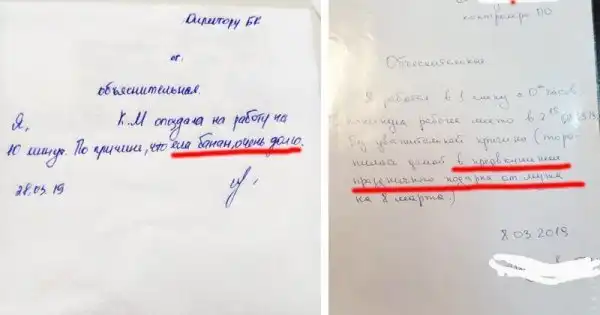 Директору БК
от.
объяснительная.
Я, К.М опоздала на работу на
10 минут. По причине, что ела банан, очень долго.
28.03.19
контролера
Объяснительная
Я работая в 1 смену
рабочее место в
без уважительной причины (торо-
пилась домой в предвкушении
праздничного подарка от мужа
на 8 марта.)
8.03.2019